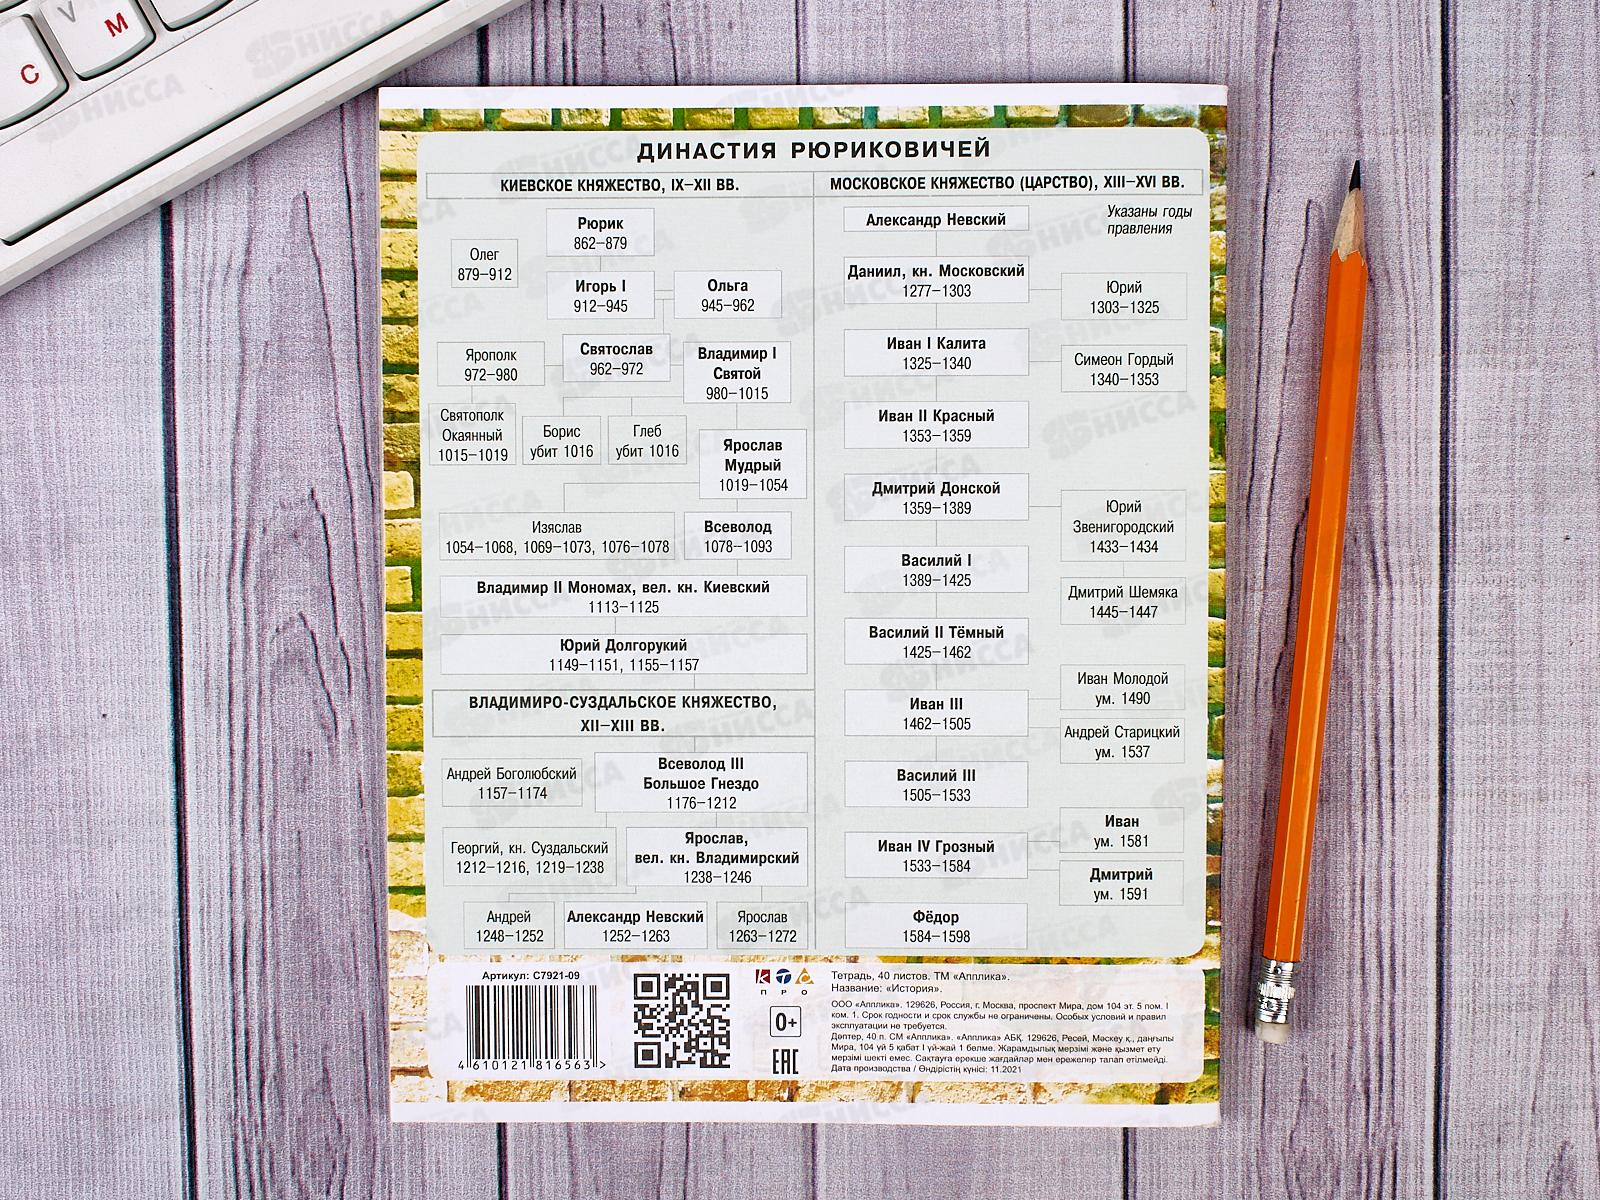 V
M
C
ДИНАСТИЯ РЮРИКОВИЧЕЙ
КИЕВСКОЕ КНЯЖЕСТВО, IX–XII ВВ.
Рюрик
862–879
Олег
879–912
Игорь I
912–945
Ольга
945–962
Ярополк
972–980
Святослав
962–972
Владимир I
Святой
980–1015
Святополк
Окаянный
1015–1019
Борис
убит 1016
Глеб
убит 1016
Ярослав
Мудрый
1019–1054
Изяслав
1054–1068, 1069–1073, 1076–1078
Всеволод
1078–1093
Владимир II Мономах, вел. кн. Киевский
1113–1125
Юрий Долгорукий
1149–1151, 1155–1157
ВЛАДИМИРО-СУЗДАЛЬСКОЕ КНЯЖЕСТВО,
XII–XIII ВВ.
Андрей Боголюбский
1157–1174
Всеволод III
Большое Гнездо
1176–1212
Георгий, кн. Суздальский
1212–1216, 1219–1238
Ярослав,
вел. кн. Владимирский
1238–1246
Андрей
1248–1252
Александр Невский
1252–1263
Ярослав
1263–1272
МОСКОВСКОЕ КНЯЖЕСТВО (ЦАРСТВО), XIII–XVI ВВ.
Указаны годы
правления
Александр Невский
Даниил, кн. Московский
1277–1303
Юрий
1303–1325
Иван I Калита
1325–1340
Симеон Гордый
1340–1353
Иван II Красный
1353–1359
Дмитрий Донской
1359–1389
Юрий
Звенигородский
1433–1434
Василий I
1389–1425
Дмитрий Шемяка
1445–1447
Василий II Тёмный
1425–1462
Иван III
1462–1505
Иван Молодой
ум. 1490
Андрей Старицкий
ум. 1537
Василий III
1505–1533
Иван IV Грозный
1533–1584
Иван
ум. 1581
Дмитрий
ум. 1591
Фёдор
1584–1598
Артикул: С7921-09
4 610121 816563 >
К Т С
П Р О
0+
EAC
Тетрадь, 40 листов. ТМ «Апплика».
Название: «История».
ООО «Апплика». 129626, Россия, г. Москва, проспект Мира, дом 104 эт. 5 пом. I
ком. 1. Срок годности и срок службы не ограничены. Особых условий и правил
эксплуатации не требуется.
Дәптер, 40 п. СМ «Апплика». «Апплика» АБҚ. 129626, Ресей, Мәскеу қ., даңғылы
Мира, 104 үй 5 қабат I үй-жай 1 бөлме. Жарамдылық мерзімі және қызмет ету
мерзімі шекті емес. Сақтауға ерекше жағдайлар мен ережелер талап етілмейді.
Дата производства / Өндірістің күнісі: 11.2021
НИССА